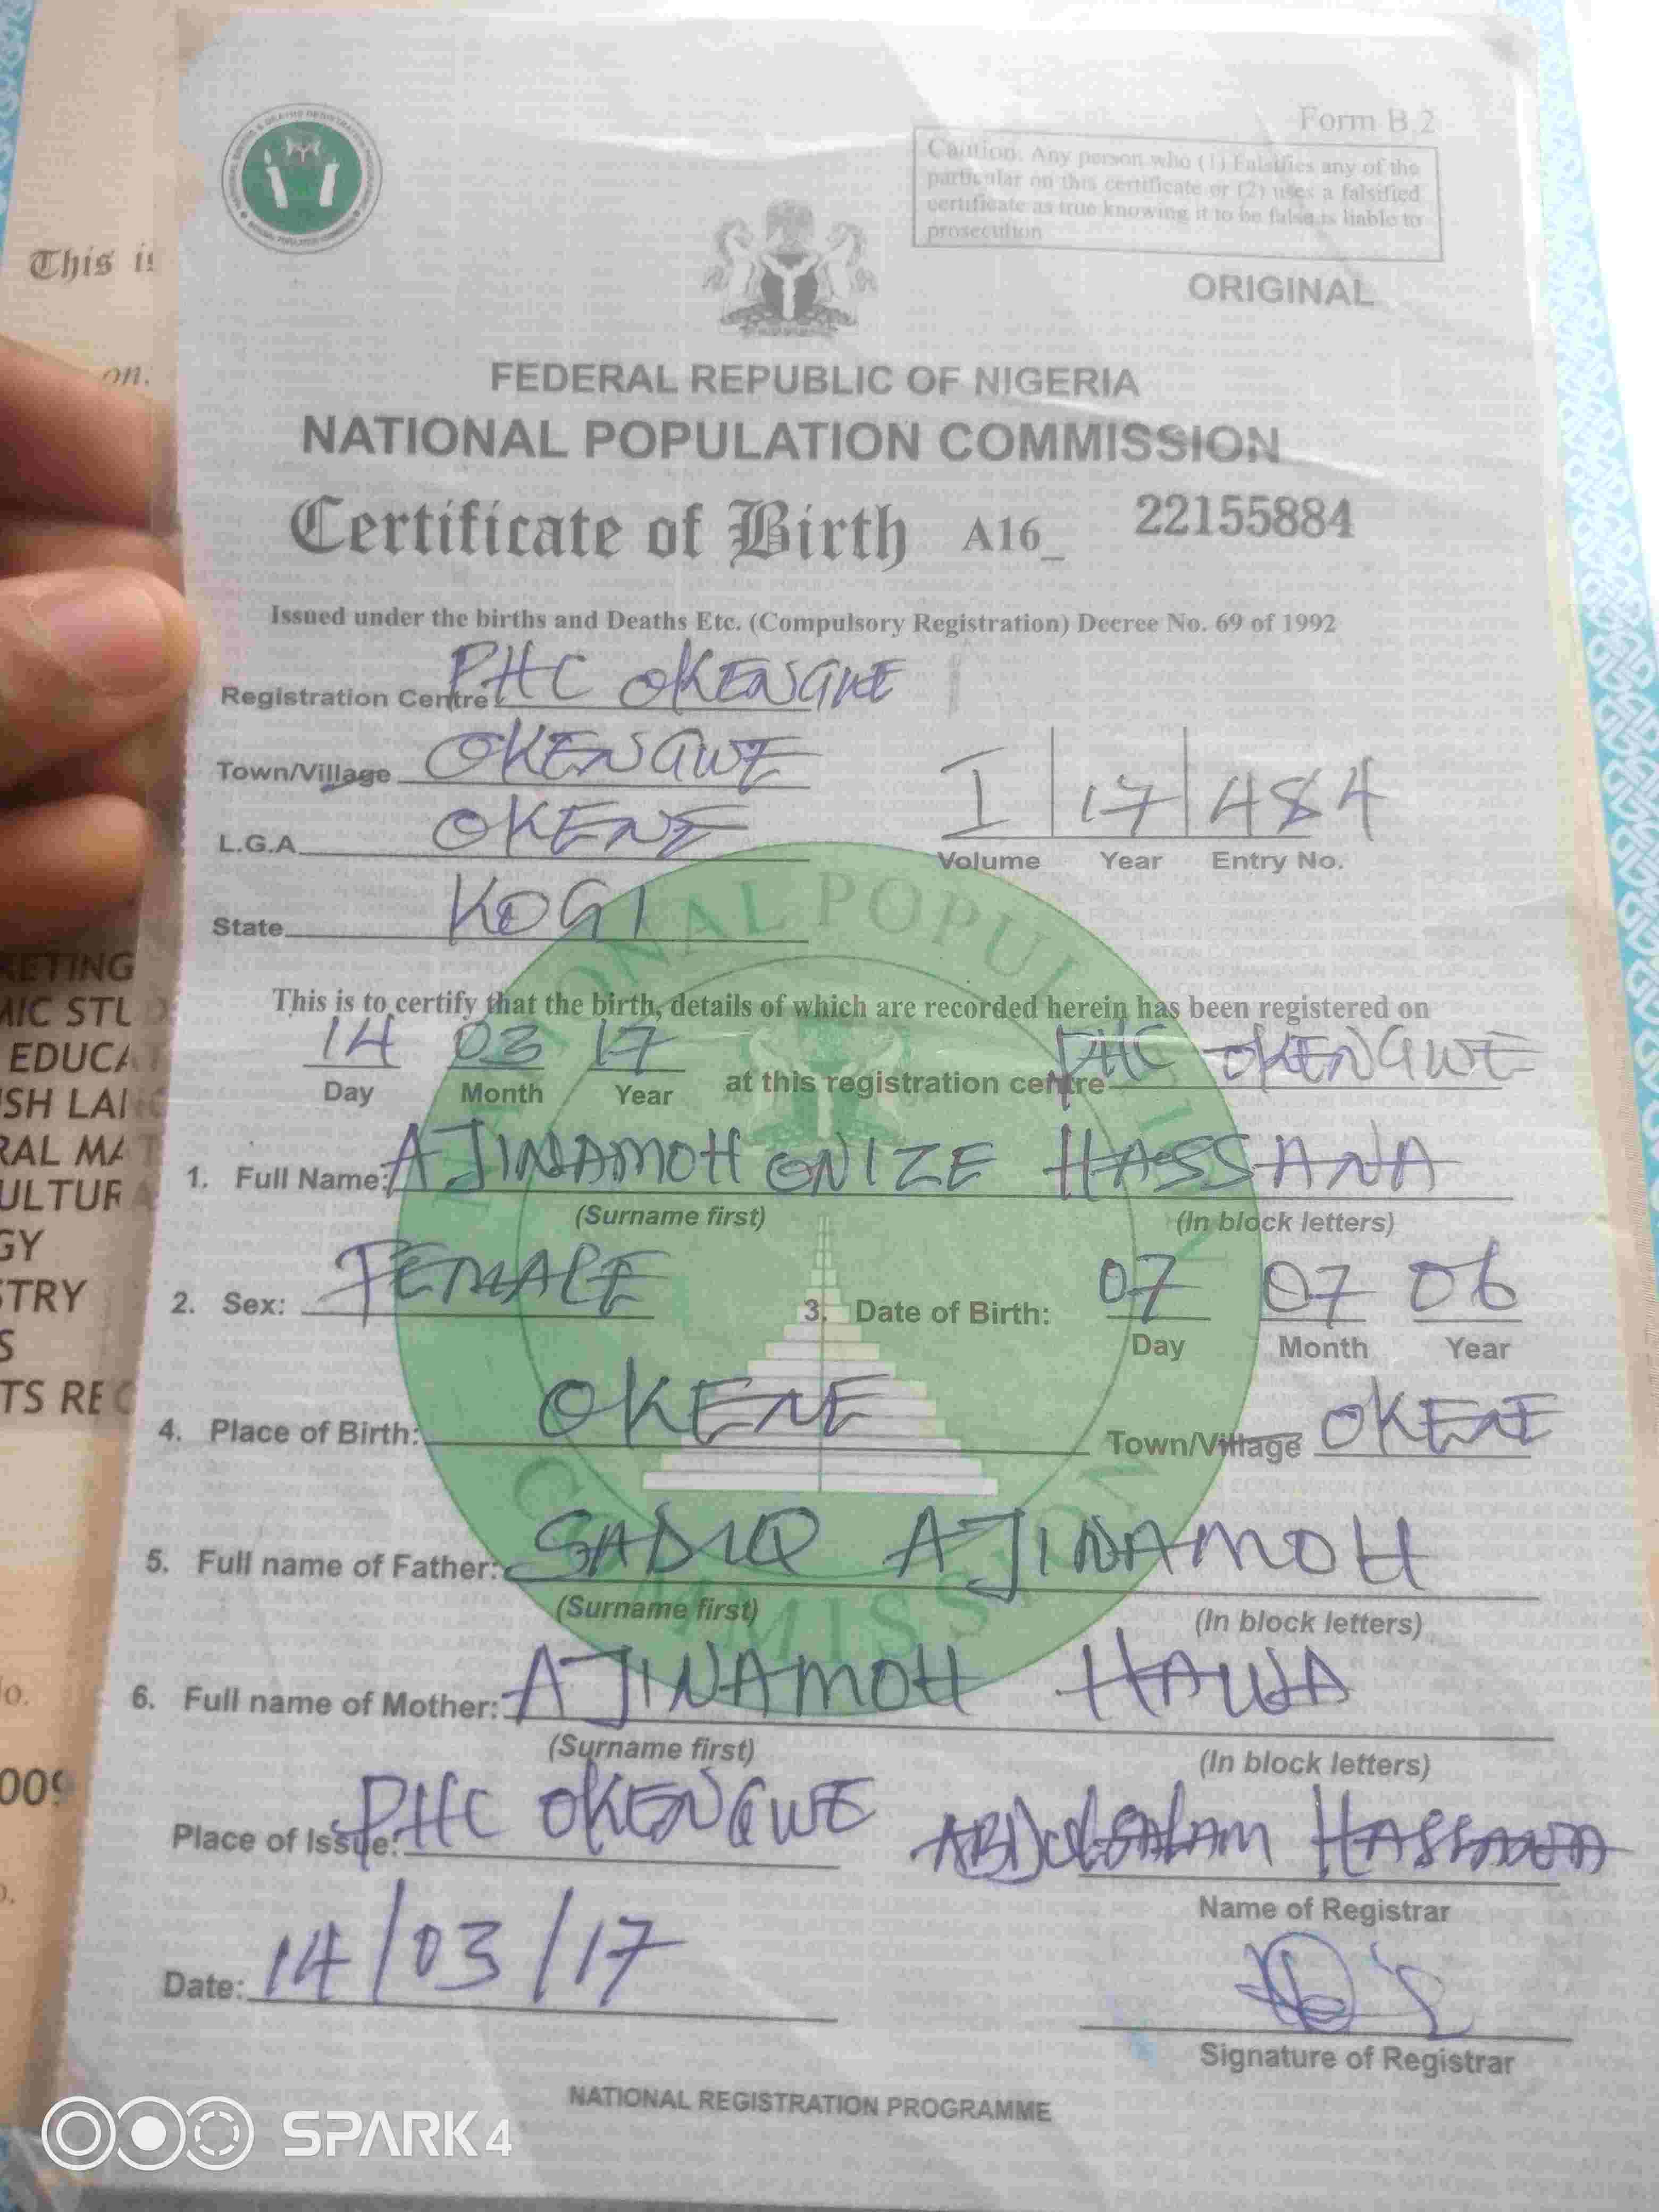 Form B 2
Caution. Any person who (1) Falsifies any of the
particular on this certificate or (2) uses a falsified
certificate as true knowing it to be false is liable to
prosecution
ORIGINAL
This is
on.
FEDERAL REPUBLIC OF NIGERIA
NATIONAL POPULATION COMMISSION
Certificate of Birth A16_ 22155884
Issued under the births and Deaths Etc. (Compulsory Registration) Decree No. 69 of 1992
Registration Centre PHC OKENGWE
Town/Village OKENGWE
L.G.A OKENE
I 17 484
Volume Year Entry No.
State KOGI
This is to certify that the birth, details of which are recorded herein has been registered on
14 03 17 at this registration centre PHC OKENGWE
Day Month Year
1. Full Name: AJINAMOH ONIZE HASSANA
(Surname first) (In block letters)
2. Sex: FEMALE 3. Date of Birth: 07 07 06
Day Month Year
4. Place of Birth: OKENE Town/Village OKENE
5. Full name of Father: SADIQ AJINAMOH
(Surname first) (In block letters)
6. Full name of Mother: AJINAMOH HAWA
(Surname first) (In block letters)
Place of Issue: PHC OKENGWE
Name of Registrar
Date: 14/03/17
Signature of Registrar
NATIONAL REGISTRATION PROGRAMME
NATIONAL POPULATION COMMISSION
KETING
MIC STUD
EDUCAT
SH LANG
RAL MAT
ULTURA
GY
STRY
S
TS REC
009
SPARK 4